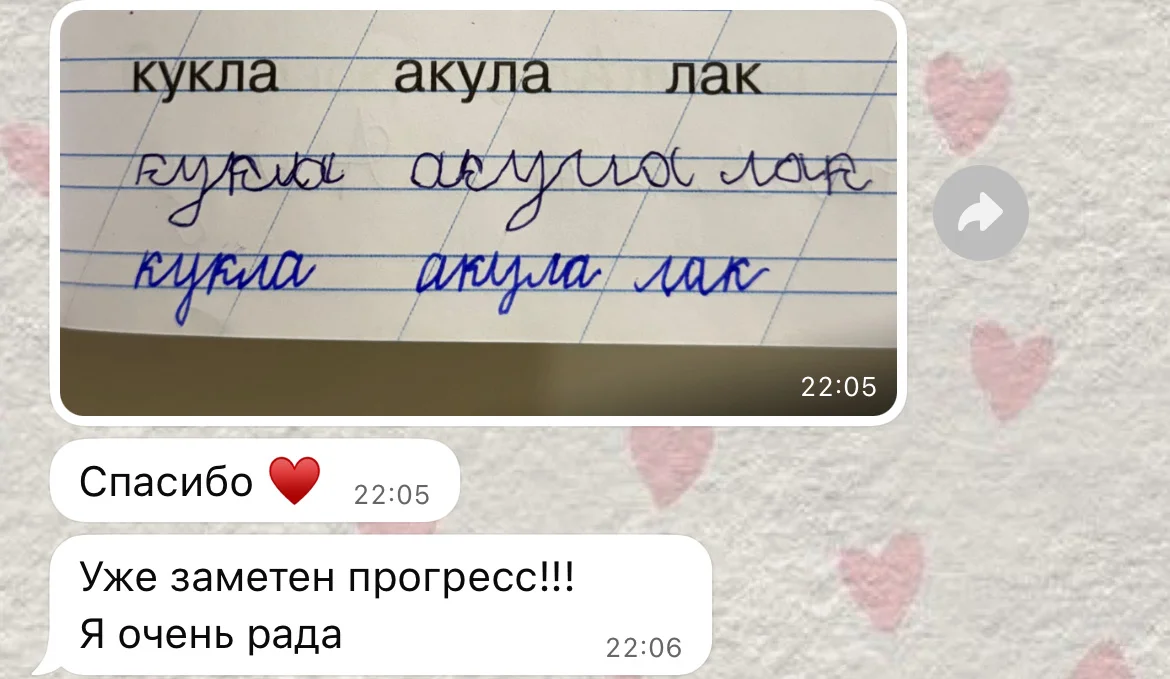 кукла акула лак
кукла акула лак
кукла акула лак
22:05
Спасибо ♥️ 22:05
Уже заметен прогресс!!!
Я очень рада 22:06